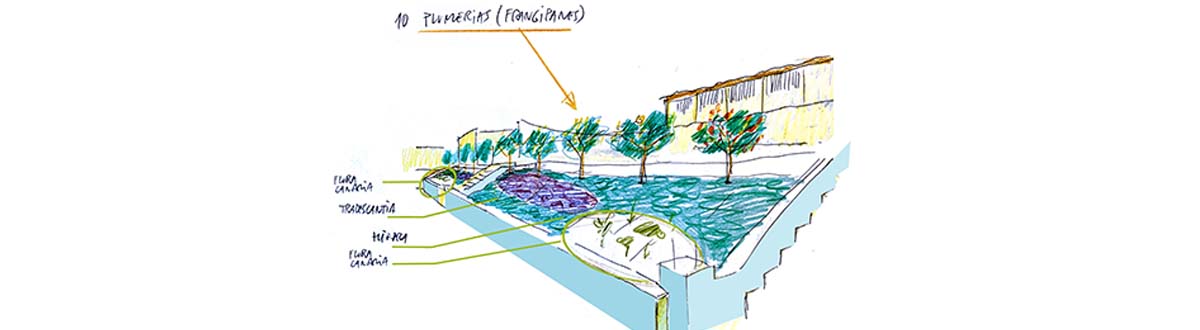 10 PLUMERIAS (FRANGIPANES)
FLORA
CANARIA
TRADESCANTIA
FLORA
CANARIA